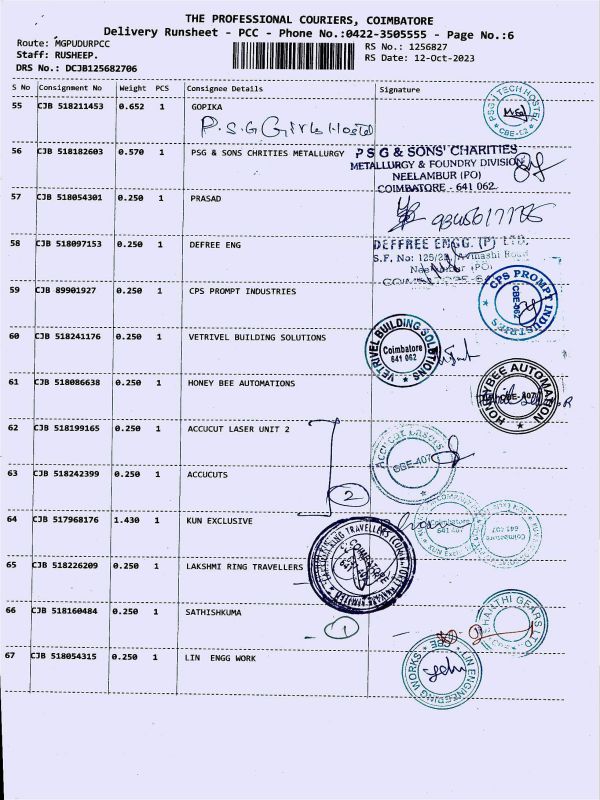 THE PROFESSIONAL COURIERS, COIMBATORE
Delivery Runsheet - PCC - Phone No.:0422-3505555 - Page No.:6
Route: MGPUDURPCC
Staff: RUSHEEP.
DRS No.: DCJB125682706
RS No.: 1256827
RS Date: 12-Oct-2023
S No Consignment No Weight PCS Consignee Details Signature
55 CJB 518211453 0.652 1 GOPIKA
P.S.G Girls Hostel
PSG I TECH HOSTEL
CBE-62
56 CJB 518182603 0.570 1 PSG & SONS CHRITIES METALLURGY
P S G & SONS' CHARITIES
METALLURGY & FOUNDRY DIVISION
NEELAMBUR (PO)
COIMBATORE - 641 062
57 CJB 518054301 0.250 1 PRASAD
58 CJB 518097153 0.250 1 DEFREE ENG
DEFFREE ENGG. (P) LTD.
S.F. No: 125/2B, Avinashi Road
Neelambur (PO)
59 CJB 89901927 0.250 1 CPS PROMPT INDUSTRIES
CPS PROMPT INDUSTRIES
CBE-062
60 CJB 518241176 0.250 1 VETRIVEL BUILDING SOLUTIONS
VETRIVEL BUILDING SOLUTIONS
Coimbatore
641 062
61 CJB 518086638 0.250 1 HONEY BEE AUTOMATIONS
HONEYBEE AUTOMATION
62 CJB 518199165 0.250 1 ACCUCUT LASER UNIT 2
CBE-407
63 CJB 518242399 0.250 1 ACCUCUTS
2
64 CJB 517968176 1.430 1 KUN EXCLUSIVE
Coimbatore
641 407
Coimbatore
641 407
65 CJB 518226209 0.250 1 LAKSHMI RING TRAVELLERS
66 CJB 518160484 0.250 1 SATHISHKUMA
1
SHANTHI GEARS LTD
67 CJB 518054315 0.250 1 LIN ENGG WORK
LIN ENGINEERING WORKS
CBE